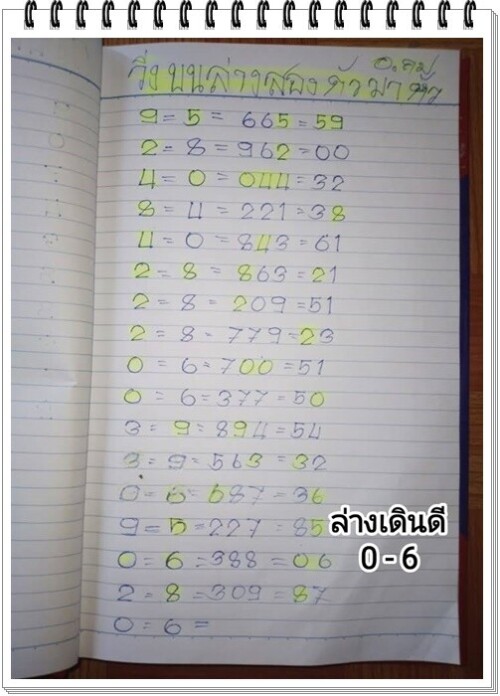 วิ่งบนล่างสองตัวมาตัว
9 = 5 = 665 = 59
2 = 8 = 962 = 00
4 = 0 = 044 = 32
8 = 4 = 221 = 38
4 = 0 = 843 = 61
2 = 8 = 863 = 21
2 = 8 = 209 = 51
2 = 8 = 779 = 23
0 = 6 = 700 = 51
0 = 6 = 377 = 50
3 = 9 = 894 = 54
3 = 9 = 563 = 32
0 = 6 = 687 = 36
9 = 5 = 227 = 85
ล่างเดินดี
0 - 6
0 = 6 = 388 = 06
2 = 8 = 309 = 87
0 = 6 =